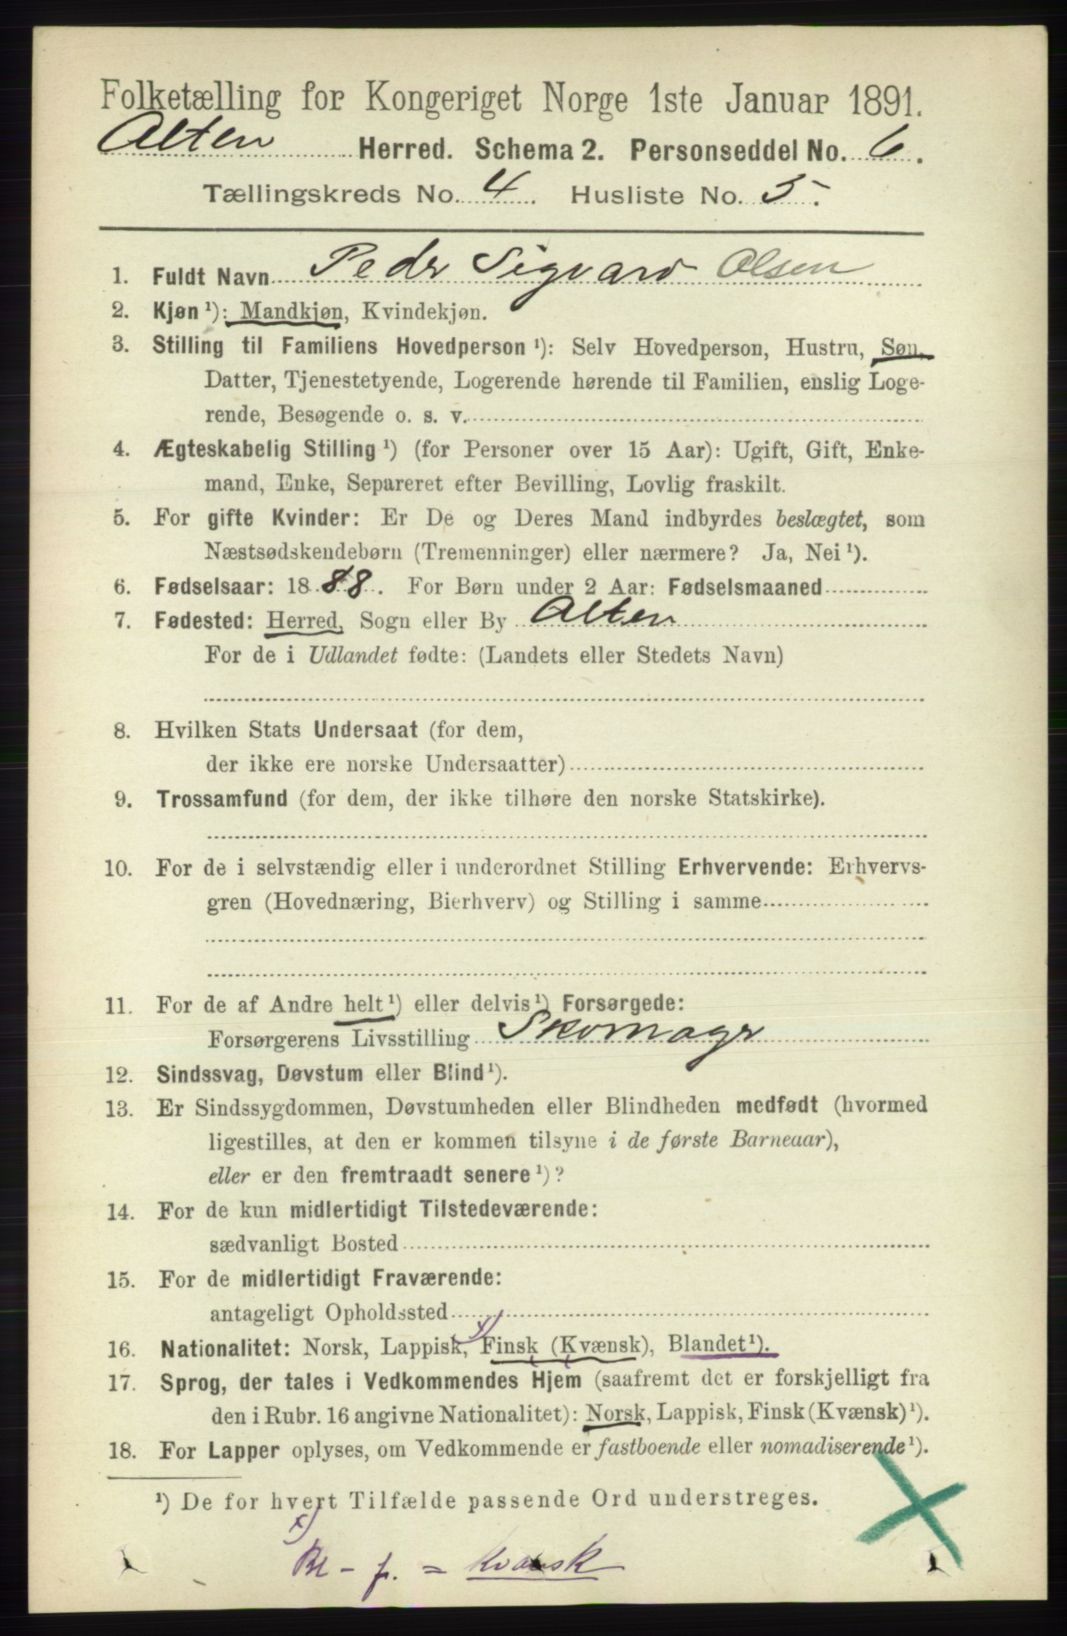 Folketælling for Kongeriget Norge 1ste Januar 1891.
Alten Herred. Schema 2. Personseddel No. 6.
Tællingskreds No. 4. Husliste No. 5.
1. Fuldt Navn Peder Sigvard Olsen
2. Kjøn ¹): Mandkjøn, Kvindekjøn.
3. Stilling til Familiens Hovedperson ¹): Selv Hovedperson, Hustru, Søn,
Datter, Tjenestetyende, Logerende hørende til Familien, enslig Loge-
rende, Besøgende o. s. v.
4. Ægteskabelig Stilling ¹) (for Personer over 15 Aar): Ugift, Gift, Enke-
mand, Enke, Separeret efter Bevilling, Lovlig fraskilt.
5. For gifte Kvinder: Er De og Deres Mand indbyrdes beslægtet, som
Næstsødskendebørn (Tremenninger) eller nærmere? Ja, Nei ¹).
6. Fødselsaar: 1888. For Børn under 2 Aar: Fødselsmaaned
7. Fødested: Herred, Sogn eller By Alten
For de i Udlandet fødte: (Landets eller Stedets Navn)
8. Hvilken Stats Undersaat (for dem,
der ikke ere norske Undersaatter)
9. Trossamfund (for dem, der ikke tilhøre den norske Statskirke).
10. For de i selvstændig eller i underordnet Stilling Erhvervende: Erhvervs-
gren (Hovednæring, Bierhverv) og Stilling i samme
11. For de af Andre helt ¹) eller delvis ¹) Forsørgede:
Forsørgerens Livsstilling Skomager
12. Sindssvag, Døvstum eller Blind ¹).
13. Er Sindssygdommen, Døvstumheden eller Blindheden medfødt (hvormed
ligestilles, at den er kommen tilsyne i de første Barneaar),
eller er den fremtraadt senere ¹)?
14. For de kun midlertidigt Tilstedeværende:
sædvanligt Bosted
15. For de midlertidigt Fraværende:
antageligt Opholdssted
x)
16. Nationalitet: Norsk, Lappisk, Finsk (Kvænsk), Blandet ¹).
17. Sprog, der tales i Vedkommendes Hjem (saafremt det er forskjelligt fra
den i Rubr. 16 angivne Nationalitet): Norsk, Lappisk, Finsk (Kvænsk) ¹).
18. For Lapper oplyses, om Vedkommende er fastboende eller nomadiserende ¹).
¹) De for hvert Tilfælde passende Ord understreges.
x)
Bl - f. = Kvænsk